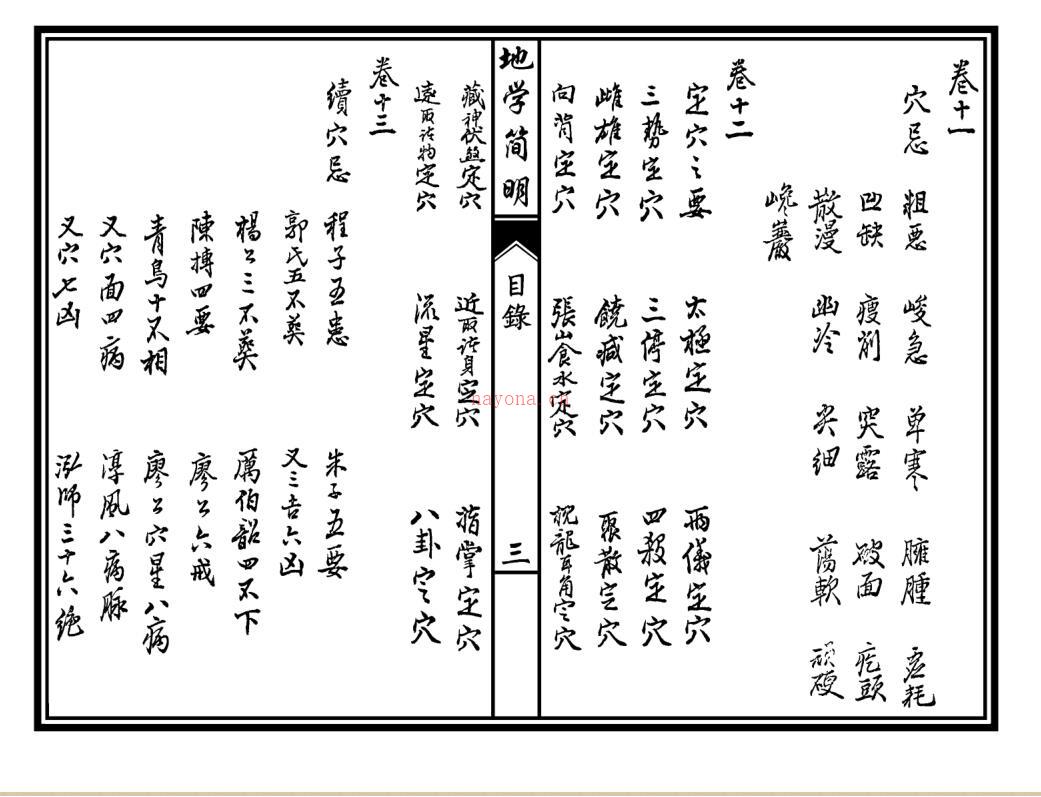 卷十一
穴忌 粗惡 峻急 单寒 臃腫 虛耗
凹缺 瘦削 突露 破面 疙頭
散漫 幽冷 尖细 蕩軟 頑硬
巉巖
卷十二
定穴之要 太極定穴 兩儀定穴
三勢定穴 三停定穴 四殺定穴
雌雄定穴 饒減定穴 聚散定穴
向背定穴 張山食水定穴 枕龍耳角定穴
地学简明
目錄
三
藏神伏煞定穴 近取诸身定穴 指掌定穴
遠取诸物定穴 流星定穴 八卦定穴
卷十三
續穴忌 程子五患 朱子五要
郭氏五不葵 又三吉六凶
楊公三不葵 厲伯韶四不下
陳摶四要 廖公六戒
青鳥十不相 廖公穴星八病
又穴面四病 淳風八病脉
又穴七凶 泓师三十六绝
nayona.cn